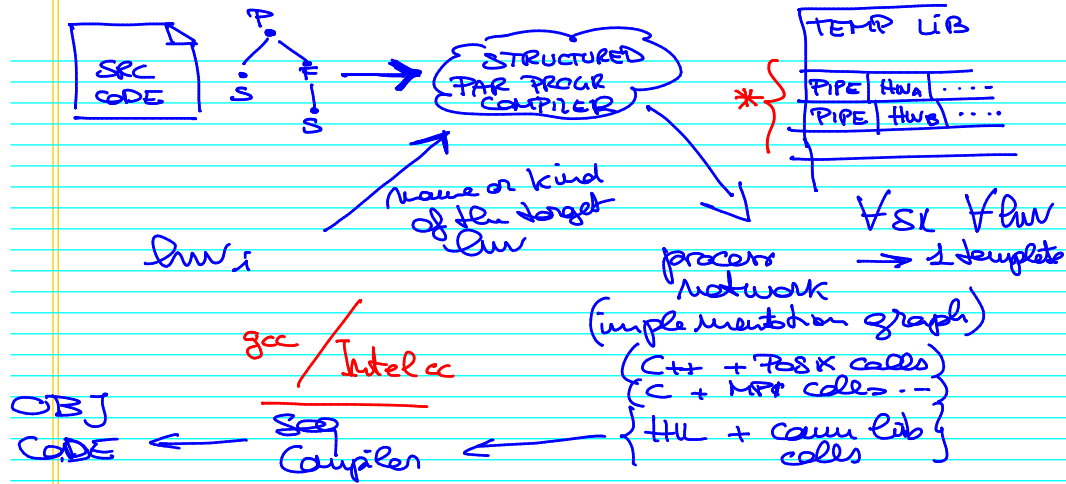 SRC
CODE
P
S
F
S
STRUCTURED
PAR PROGR
COMPILER
TEMP LIB
* PIPE HWA ....
PIPE HWB ....
name or kind
of the target
hw
hwi
∀SK ∀hw
→ 1 template
process
network
(implementation graph)
(C++ + POSIX calls)
(C + MPI calls ...)
{HL + comm lib
calls}
gcc / Intel cc
Seq
Compiler
OBJ
CODE